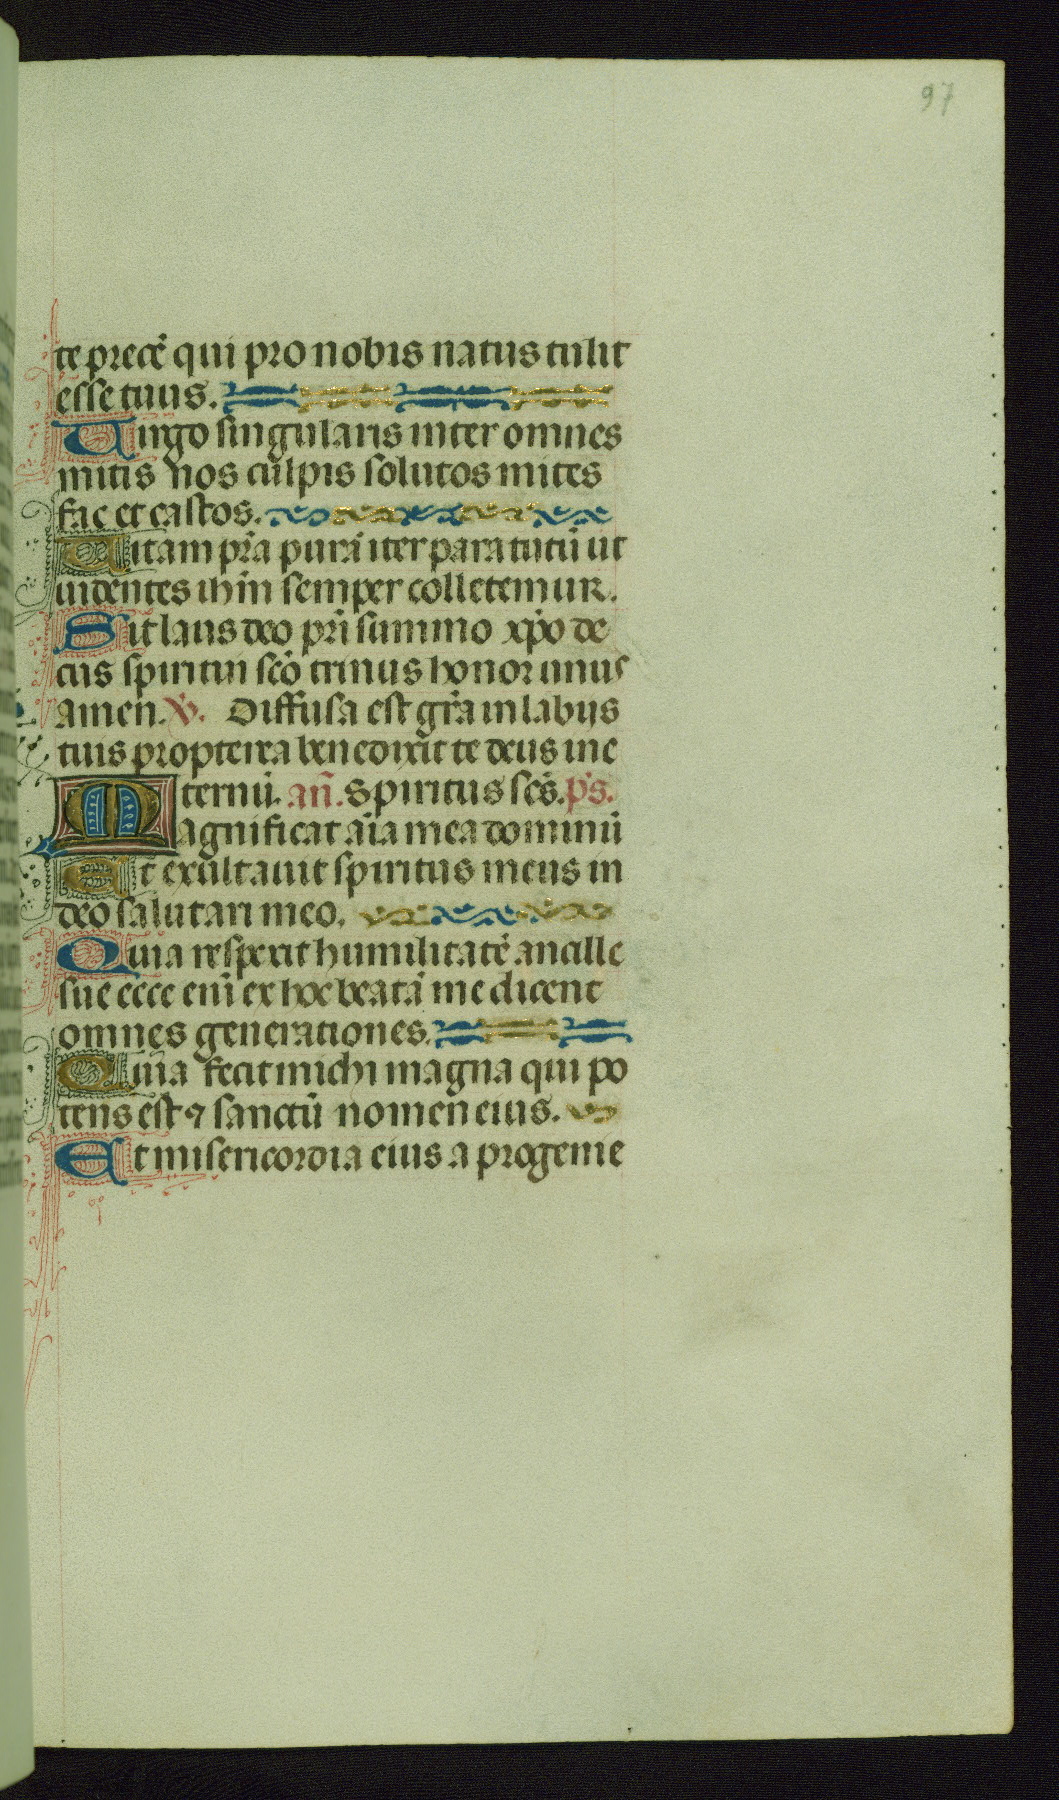 97
te precē qui pro nobis natus tulit
esse tuus.
Uirgo singularis inter omnes
mitis nos culpis solutos mites
fac et castos.
Uitam pr̄a purā iter para tutū ut
uidentes ihm̄ semper colletemur.
Sit laus deo pri̅ summo xp̄o de
cus spiritui sc̄o trinus honor unus
amen. V. Diffusa est gr̄a in labijs
tuis propterea benedixit te deus in e
ternū. an̄. Spiritus sc̄s. ps.
Magnificat aīa mea dominū
Et exultauit spiritus meus in
deo salutari meo.
Quia respexit humilitatē ancille
sue ecce enī ex hoc beatā me dicent
omnes generationes.
Quia fecit michi magna qui po
tens est ⁊ sanctū nomen eius.
Et misericordia eius a progenie